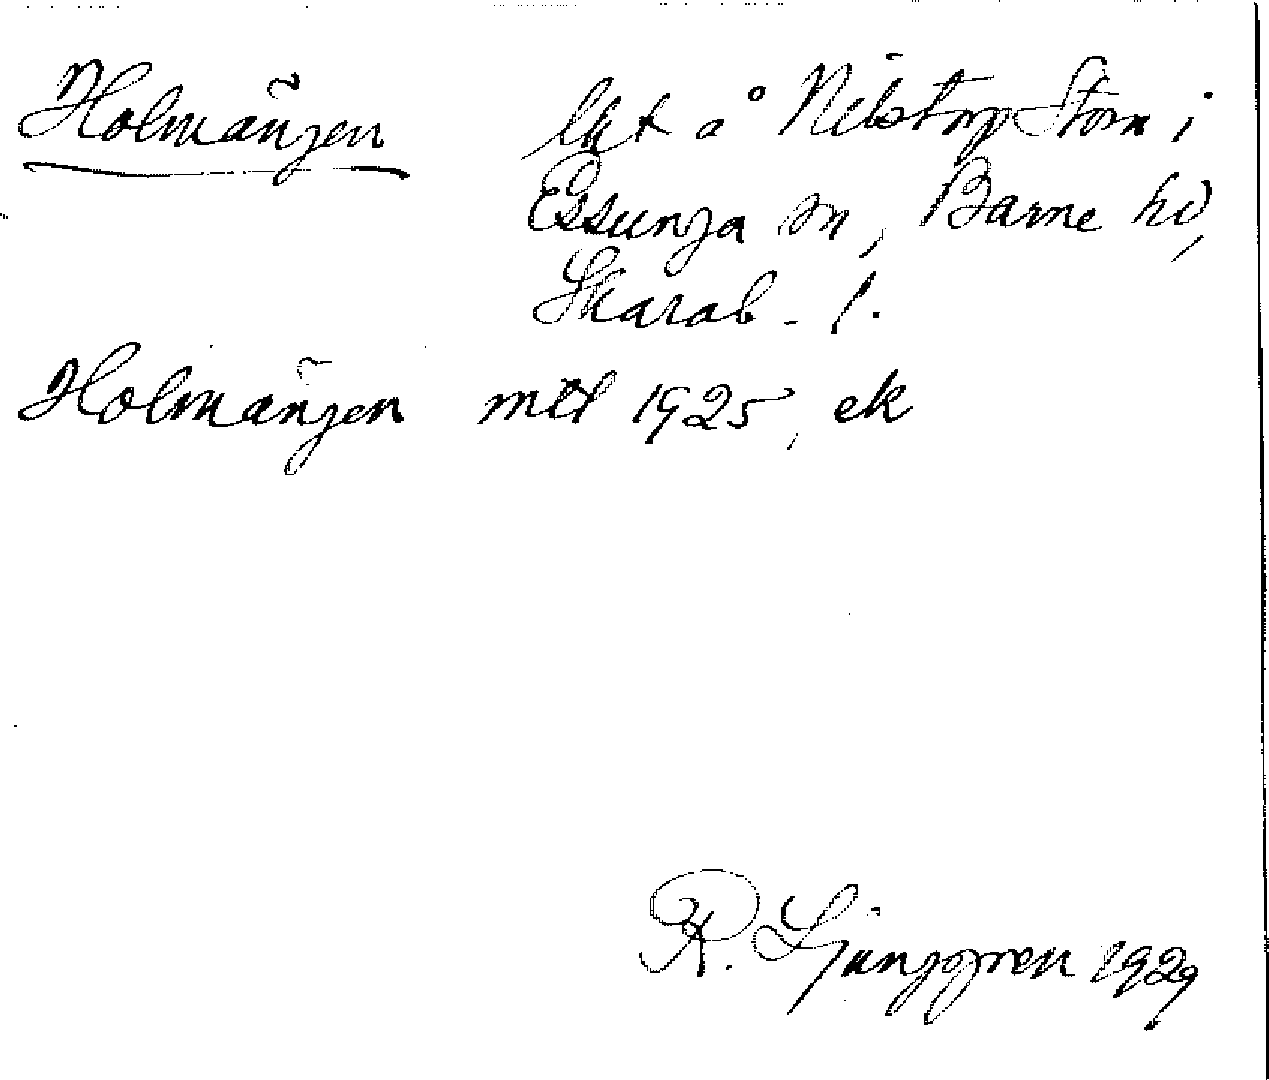 Holmängen lht å Nilstorp Storn i
Essunga sn, Barne hd,
Skarab. l.
Holmängen mtl 1925, ek
R. Ljunggren 1929